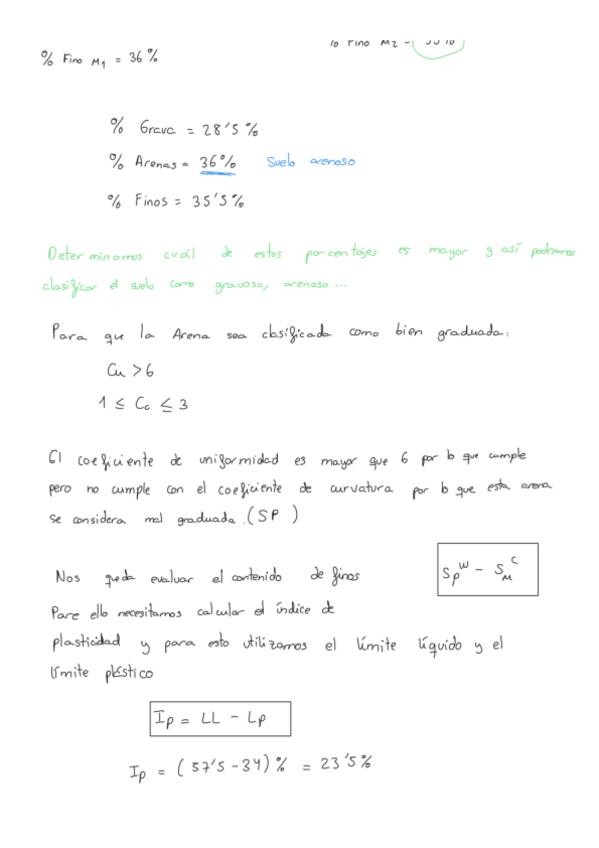 % Fino M2 =
% Fino M1 = 36%
% Grava = 28'5%
% Arenas = 36% Suelo arenoso
% Finos = 35'5%
Determinamos cuál de estos porcentajes es mayor y así podremos
clasificar el suelo como gravoso, arenoso ...
Para que la Arena sea clasificada como bien graduada:
Cu > 6
1 ≤ Cc ≤ 3
El coeficiente de uniformidad es mayor que 6 por lo que cumple
pero no cumple con el coeficiente de curvatura por lo que esta arena
se considera mal graduada. (SP )
Nos queda evaluar el contenido de finos
SpW - SMC
Para ello necesitamos calcular el índice de
plasticidad y para esto utilizamos el límite líquido y el
límite plástico
Ip = LL - Lp
Ip = (57'5 - 34) % = 23'5%